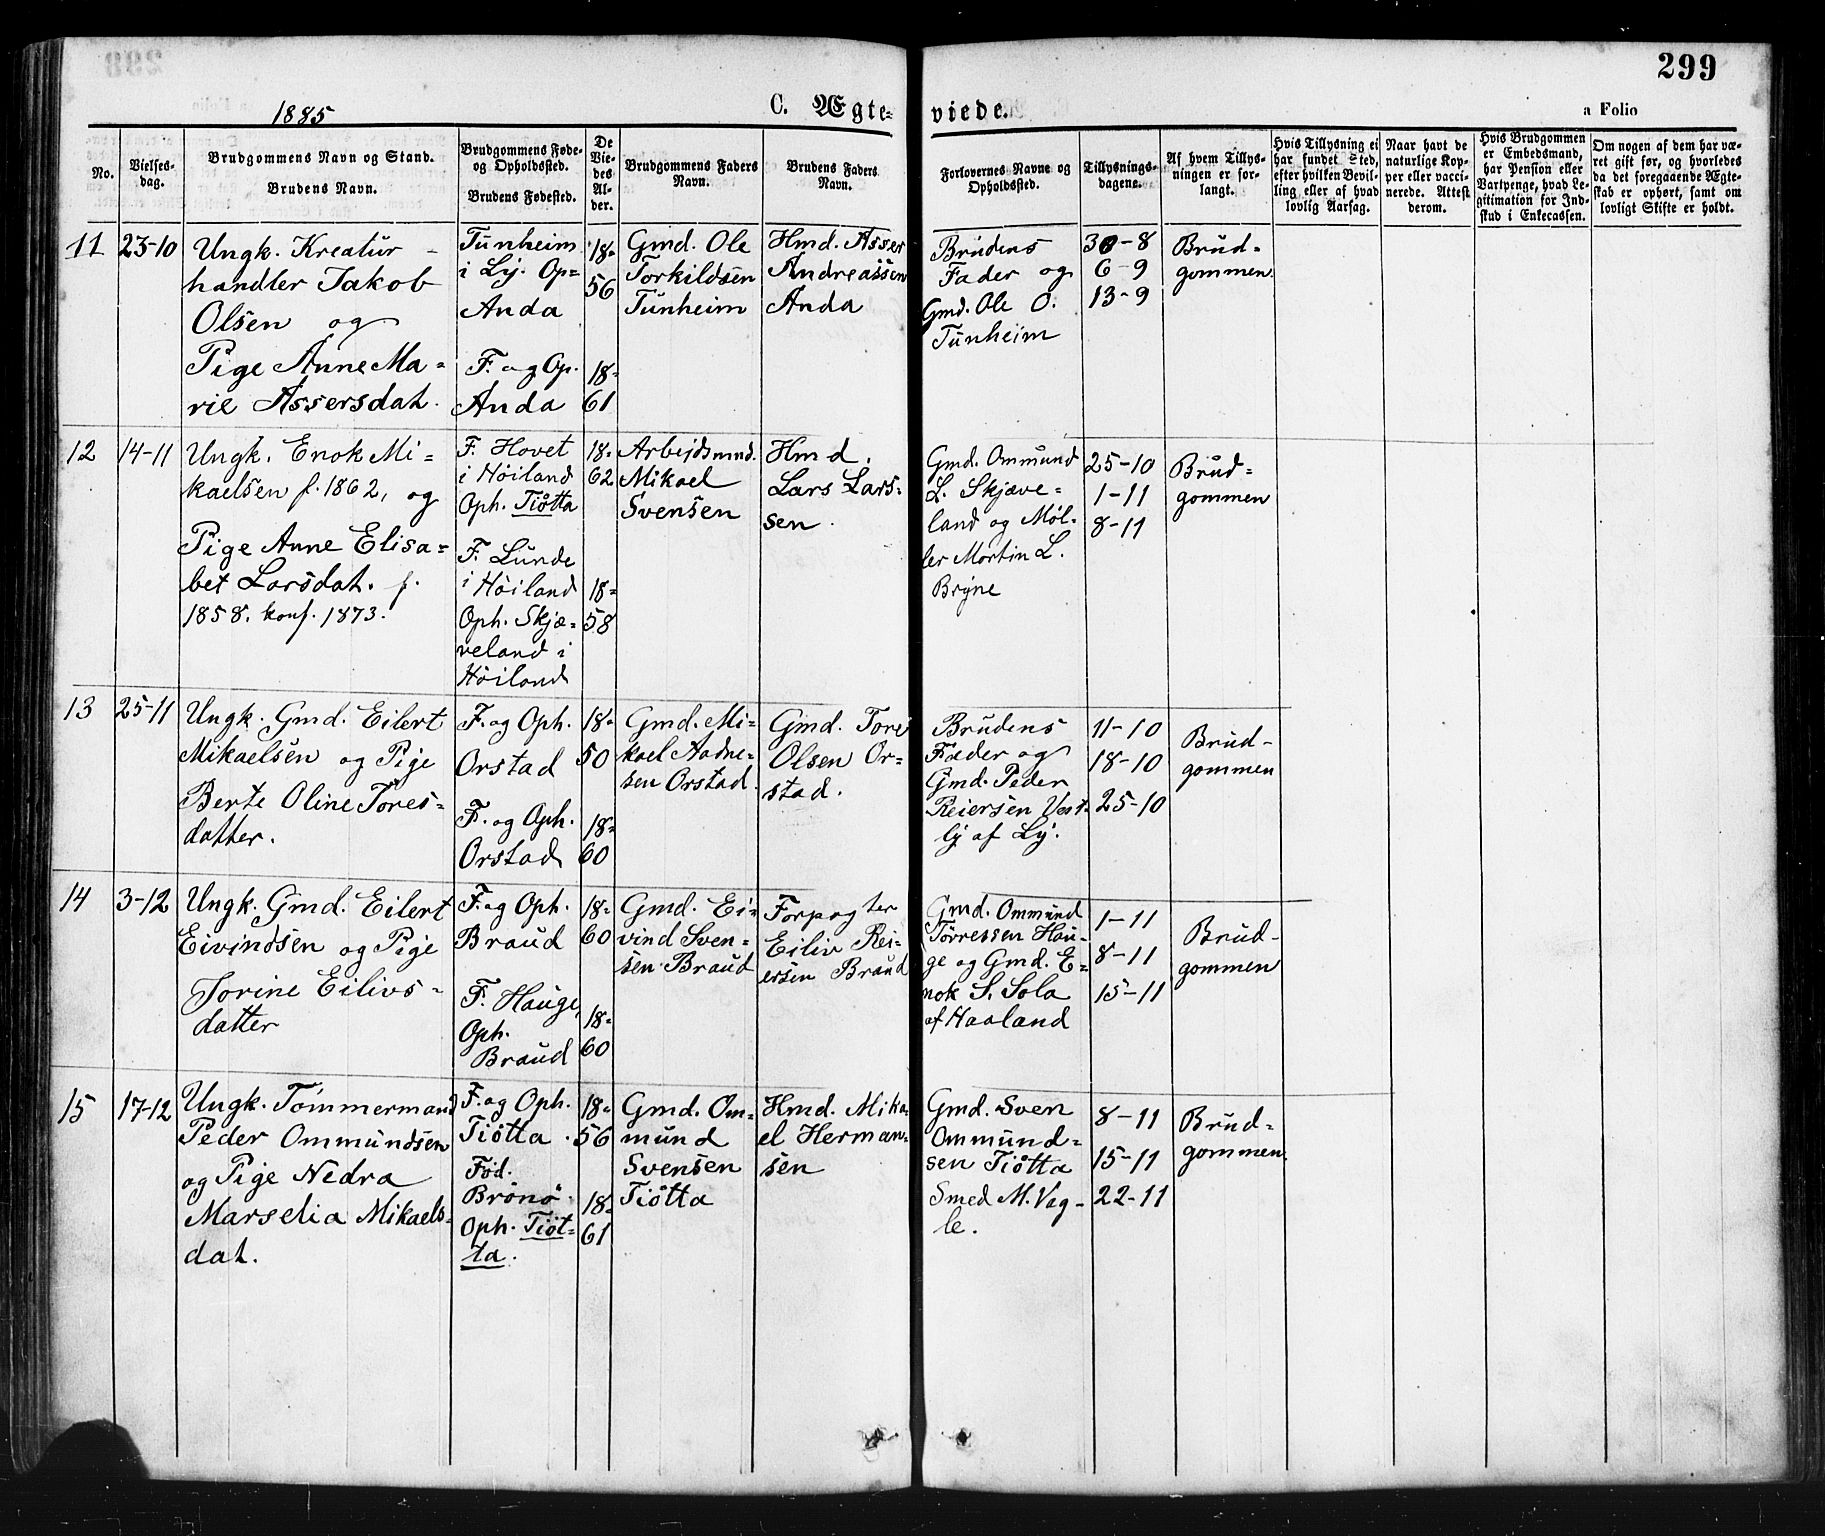 299
1885
C. Ægte-
viede.
a Folio
No.
Vielses-
dag.
Brudgommens Navn og Stand.
Brudens Navn.
Brudgommens Føde-
og Opholdssted.
Brudens Fødested.
De
Vie-
des
Al-
der.
Brudgommens Faders
Navn.
Brudens Faders
Navn.
Forlovernes Navne og
Opholdssted.
Tillysnings-
dagene.
Af hvem Tillys-
ningen er for-
langt.
Hvis Tillysning ei
har fundet Sted,
efter hvilken Bevil-
ling eller af hvad
lovlig Aarsag.
Naar havt de
naturlige Kop-
per eller vacci-
nerede. Attest
derom.
Hvis Brudgommen
er Embedsmand,
har Pension eller
Vartpenge, hvad Le-
gitimation for Ind-
skud i Enkecassen.
Om nogen af dem har væ-
ret gift før, og hvorledes
da det foregaaende Ægte-
skab er ophørt, samt om
lovligt Skifte er holdt.
11
23-10
Ungk. Kreatur-
handler Jakob
Olsen og
Pige Anne Ma-
rie Assersdat.
Tunheim
i Ly. Op-
Anda
F. og Op.
Anda
18-
56
18-
61
Gmd. Ole
Torkildsen
Tunheim
Hmd. Asser
Andreassen
Anda
Brudens
Fader og
Gmd. Ole O.
Tunheim
30-8
6-9
13-9
Brud-
gommen
12
14-11
Ungk. Enok Mi-
kaelsen f. 1862, og
Pige Anne Elisa-
bet Larsdat. f.
1858. konf. 1873.
F. Hovet
i Höiland
Oph. Tiötta
F. Lunde
i Höiland
Oph. Skjæ-
veland i
Höiland
18-
62
18-
58
Arbejdsmnd.
Mikael
Svensen
Hmd.
Lars Lars-
sen.
Gmd. Ommund
L. Skjæve-
land og Möl-
ler Martin L.
Bryne
25-10
1-11
8-11
Brud-
gommen
13
25-11
Ungk. Gmd. Eilert
Mikaelsen og Pige
Berte Oline Tores-
datter.
F. og Oph.
Orstad
F. og Oph.
Orstad
18-
50
18-
60
Gmd. Mi-
kael Aadne-
sen Orstad.
Gmd. Tore
Olsen Or-
stad.
Brudens
Fader og
Gmd. Peder
Reiersen Vest-
ly af Ly.
11-10
18-10
25-10
Brud-
gommen
14
3-12
Ungk. Gmd. Eilert
Eivindsen og Pige
Torine Eilivs-
datter
F. og Oph.
Braud
F. Hauge,
Oph.
Braud
18-
60
18-
60
Gmd. Ei-
vind Sven-
sen Braud
Forpagter
Eiliv Rei-
ersen Braud
Gmd. Ommund
Törressen Hau-
ge og Gmd. E-
nok S. Sola
af Haaland
1-11
8-11
15-11
Brud-
gommen
15
17-12
Ungk. Tömmermand
Peder Ommundsen
og Pige Nedra
Marselia Mikaels-
dat.
F. og Oph.
Tiötta.
Fød.
Brönö
Oph. Tiöt-
ta.
18-
56
18-
61
Gmd. Om-
mund
Svensen
Tiötta
Hmd. Mika-
el Herman-
sen
Gmd. Sven
Ommund-
sen Tiötta
Smed M. Vag-
le.
8-11
15-11
22-11
Brud-
gommen.